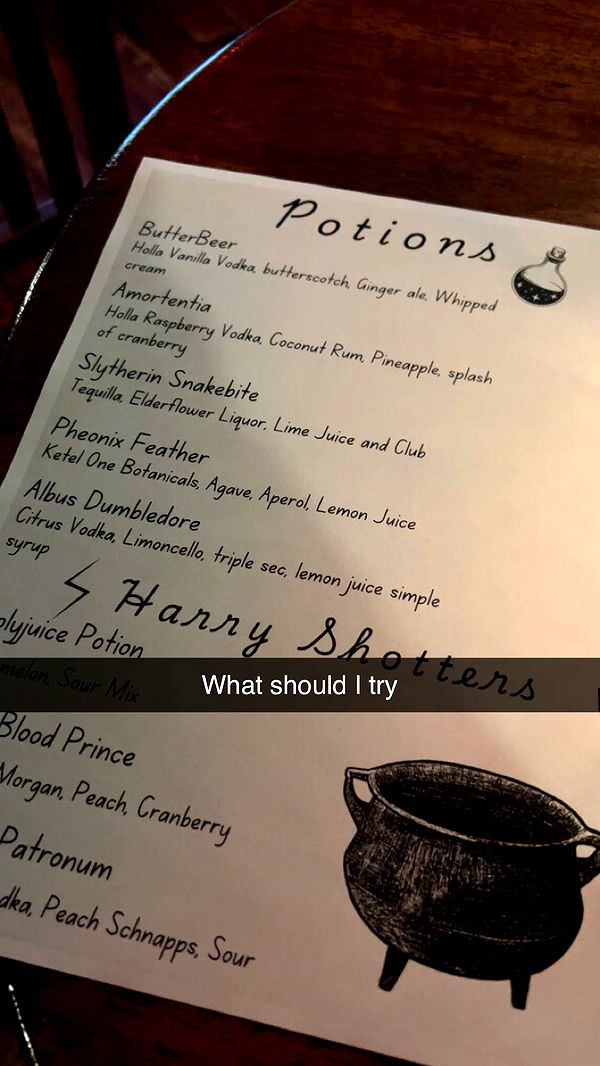 Potions
ButterBeer
Holla Vanilla Vodka, butterscotch, Ginger ale, Whipped
cream
Amortentia
Holla Raspberry Vodka, Coconut Rum, Pineapple, splash
of cranberry
Slytherin Snakebite
Tequilla, Elderflower Liquor, Lime Juice and Club
Pheonix Feather
Ketel One Botanicals, Agave, Aperol, Lemon Juice
Albus Dumbledore
Citrus Vodka, Limoncello, triple sec, lemon juice simple
syrup
Harry Shotters
olyjuice Potion
melon, Sour Mix
What should I try
Blood Prince
Morgan, Peach, Cranberry
Patronum
dka, Peach Schnapps, Sour